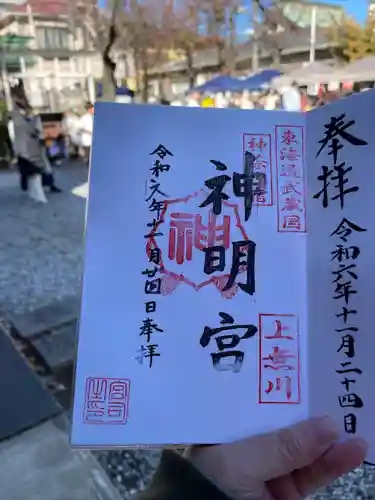 奉拝
令和六年十一月二十四日
東海道武蔵国
神奈川宿
神明宮
神
上無川
令和六年十一月廿四日奉拝
宮司之印